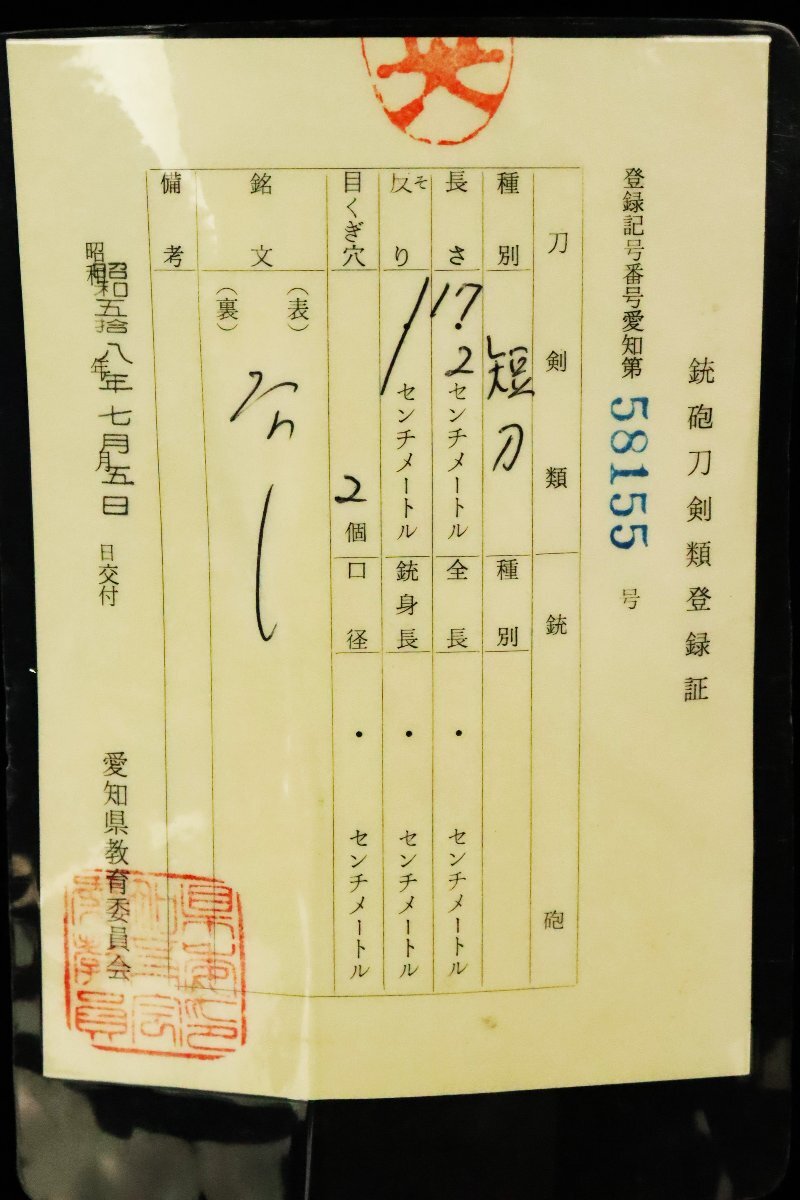 銃砲刀剣類登録証
登録記号番号愛知第58155号
刀剣類
銃砲
種別
短刀
種別
長さ
17.2センチメートル
全長
・センチメートル
反り
そ
センチメートル
銃身長
・センチメートル
目くぎ穴
2個
口径
・センチメートル
銘文
(表)
(裏)
なし
備考
昭和 年 月 日交付
昭和五拾八年七月五日
愛知県教育委員会